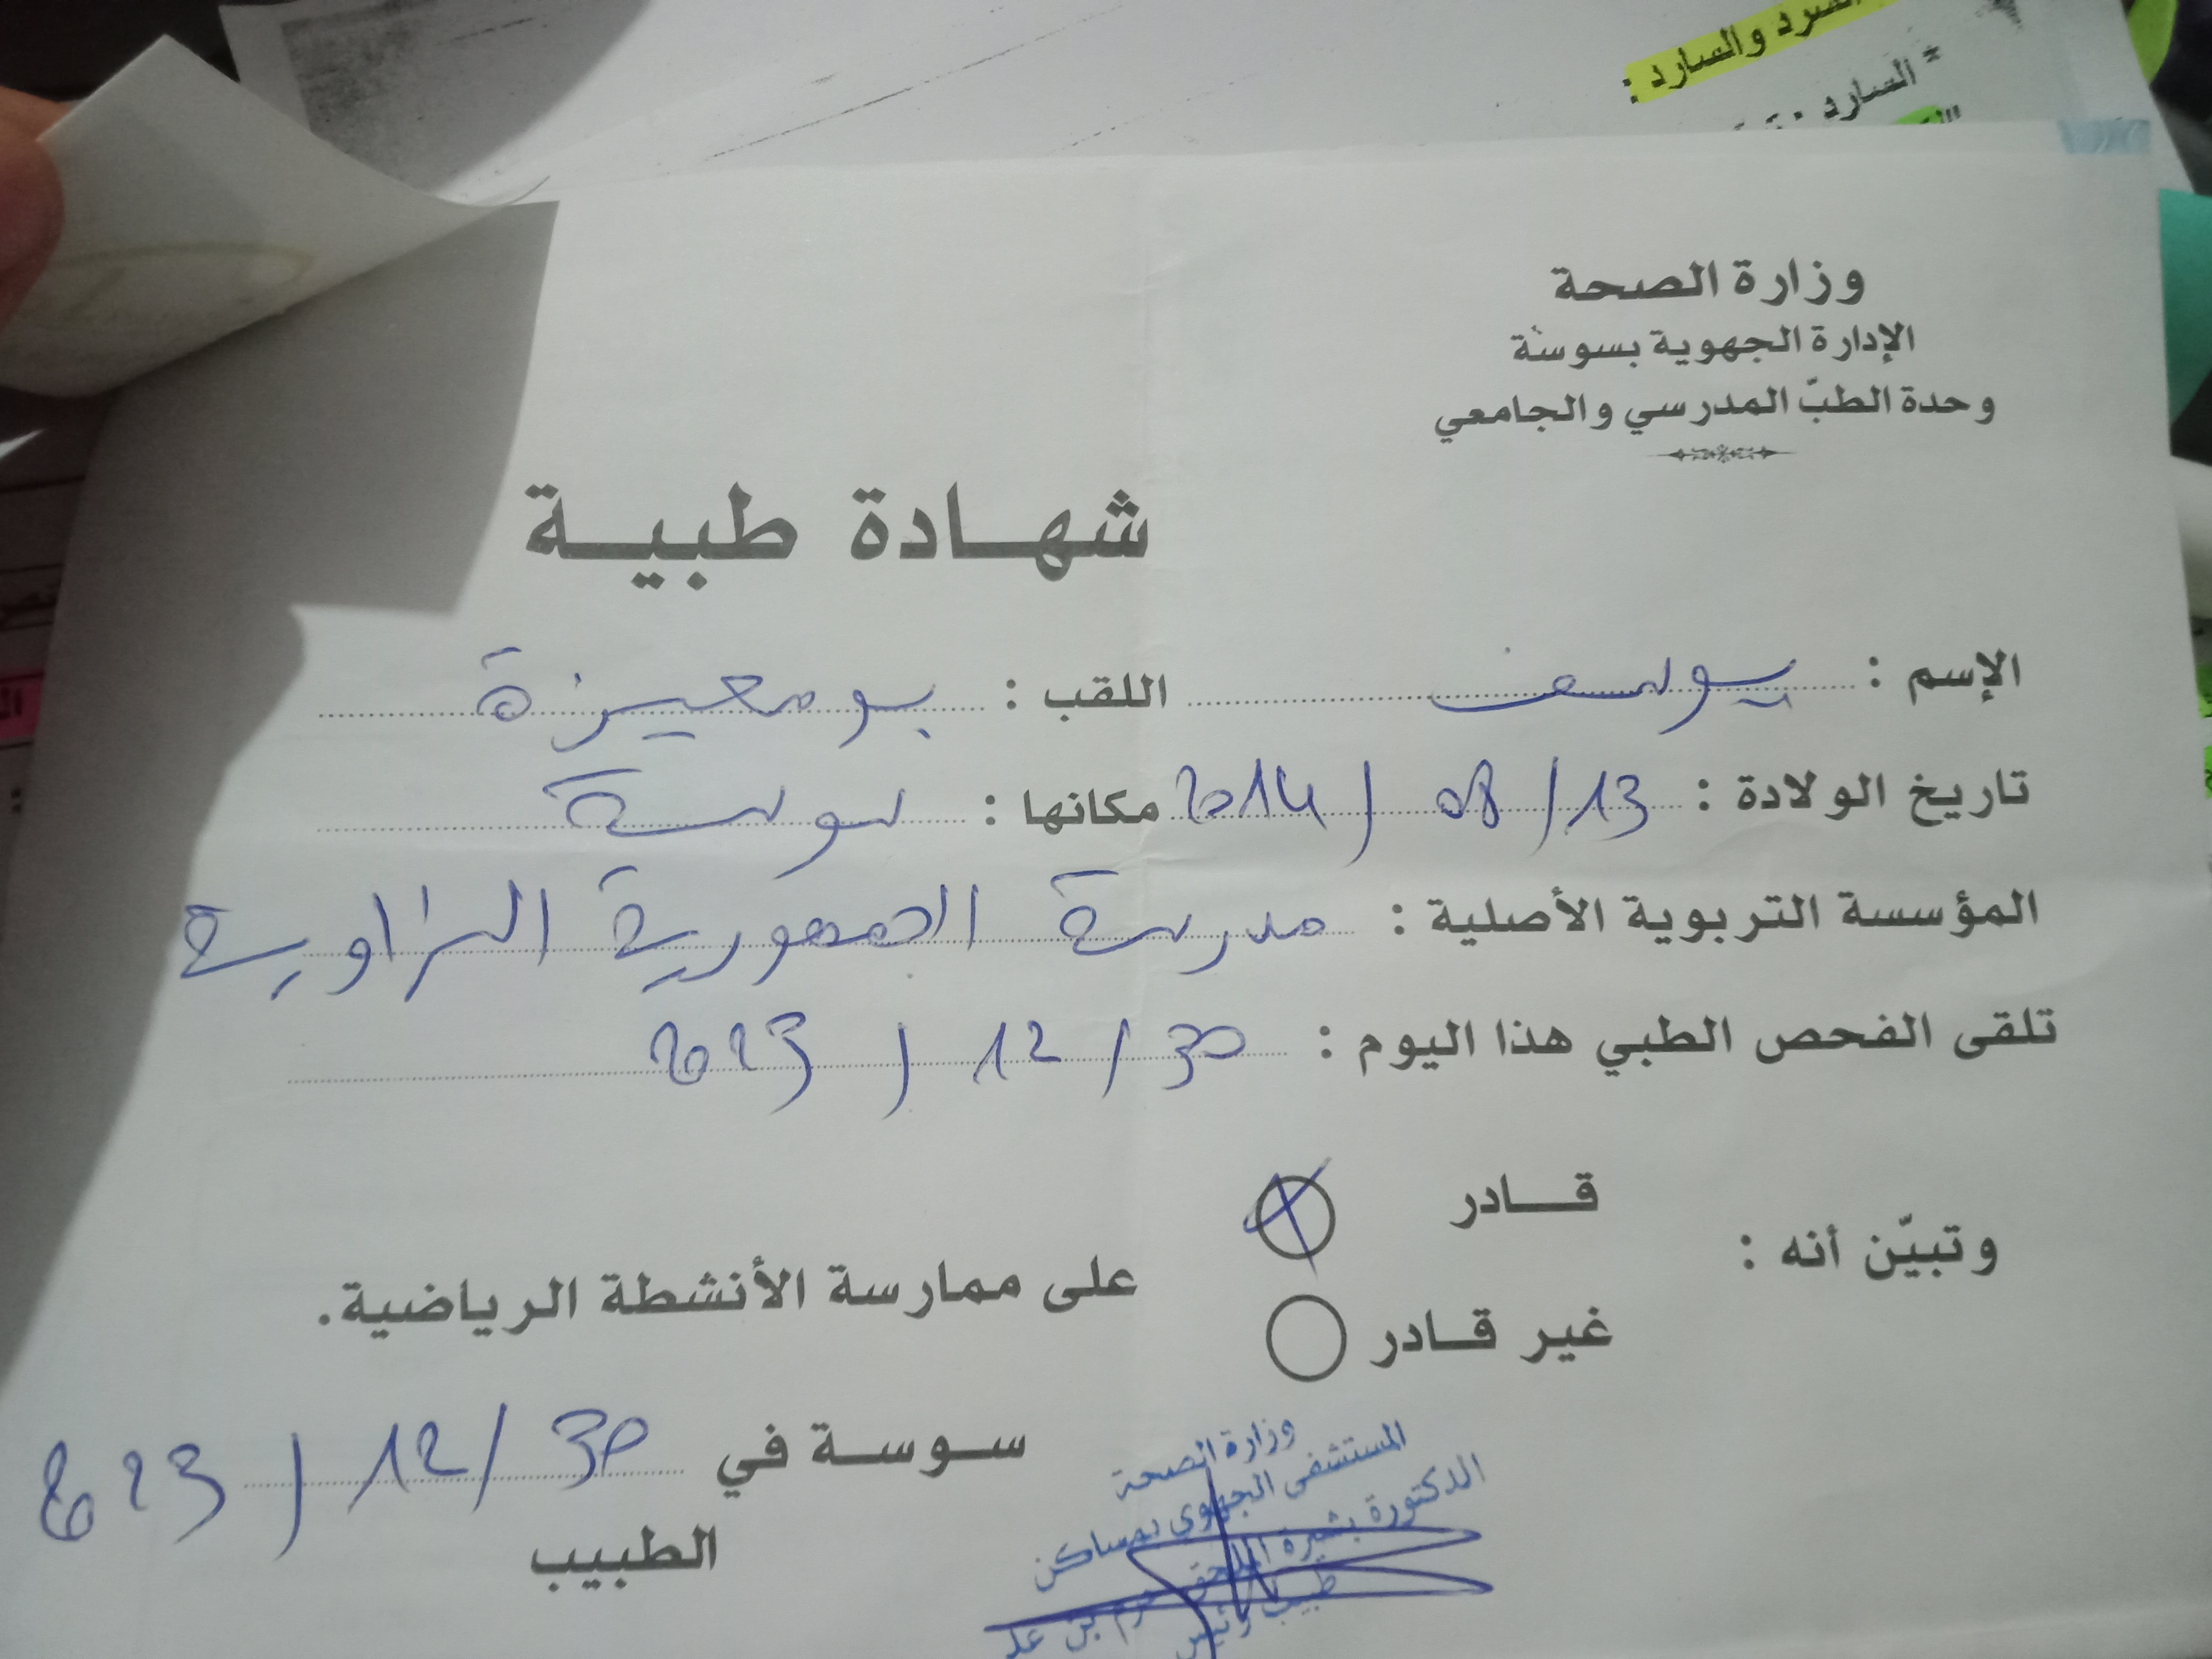 السرد والسارد :
* السارد :
وزارة الصحة
الإدارة الجهوية بسوسة
وحدة الطبّ المدرسي والجامعي
شهادة طبية
الإسم : يوسف اللقب : بومعيزة
تاريخ الولادة : 13/ 08 / 2014 مكانها : سوسة
المؤسسة التربوية الأصلية : مدرسة الجمهورية الزاوية
تلقى الفحص الطبي هذا اليوم : 30 / 12 / 2023
وتبيّن أنه :
قادر
غير قادر
على ممارسة الأنشطة الرياضية.
سوسة في 30 / 12 / 2023
الطبيب
وزارة الصحة
المستشفى الجهوي بمساكن
الدكتورة بشيرة
طبيب رئيس